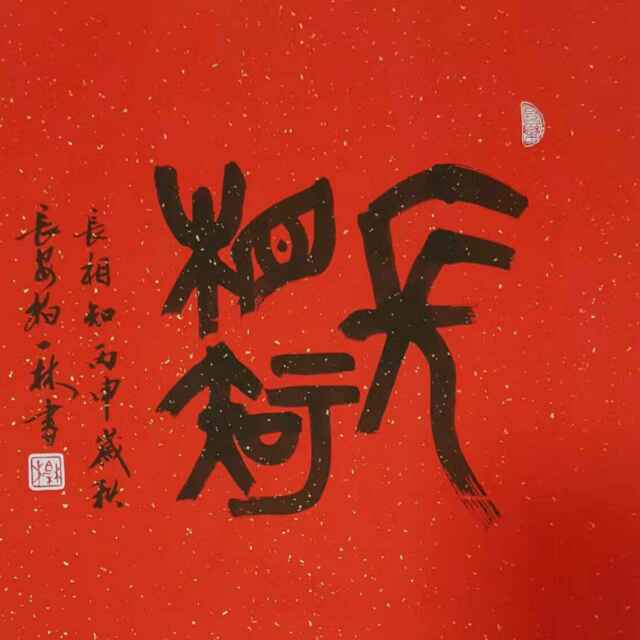 長
相知
長相知丙申歲秋
長安柏一林書